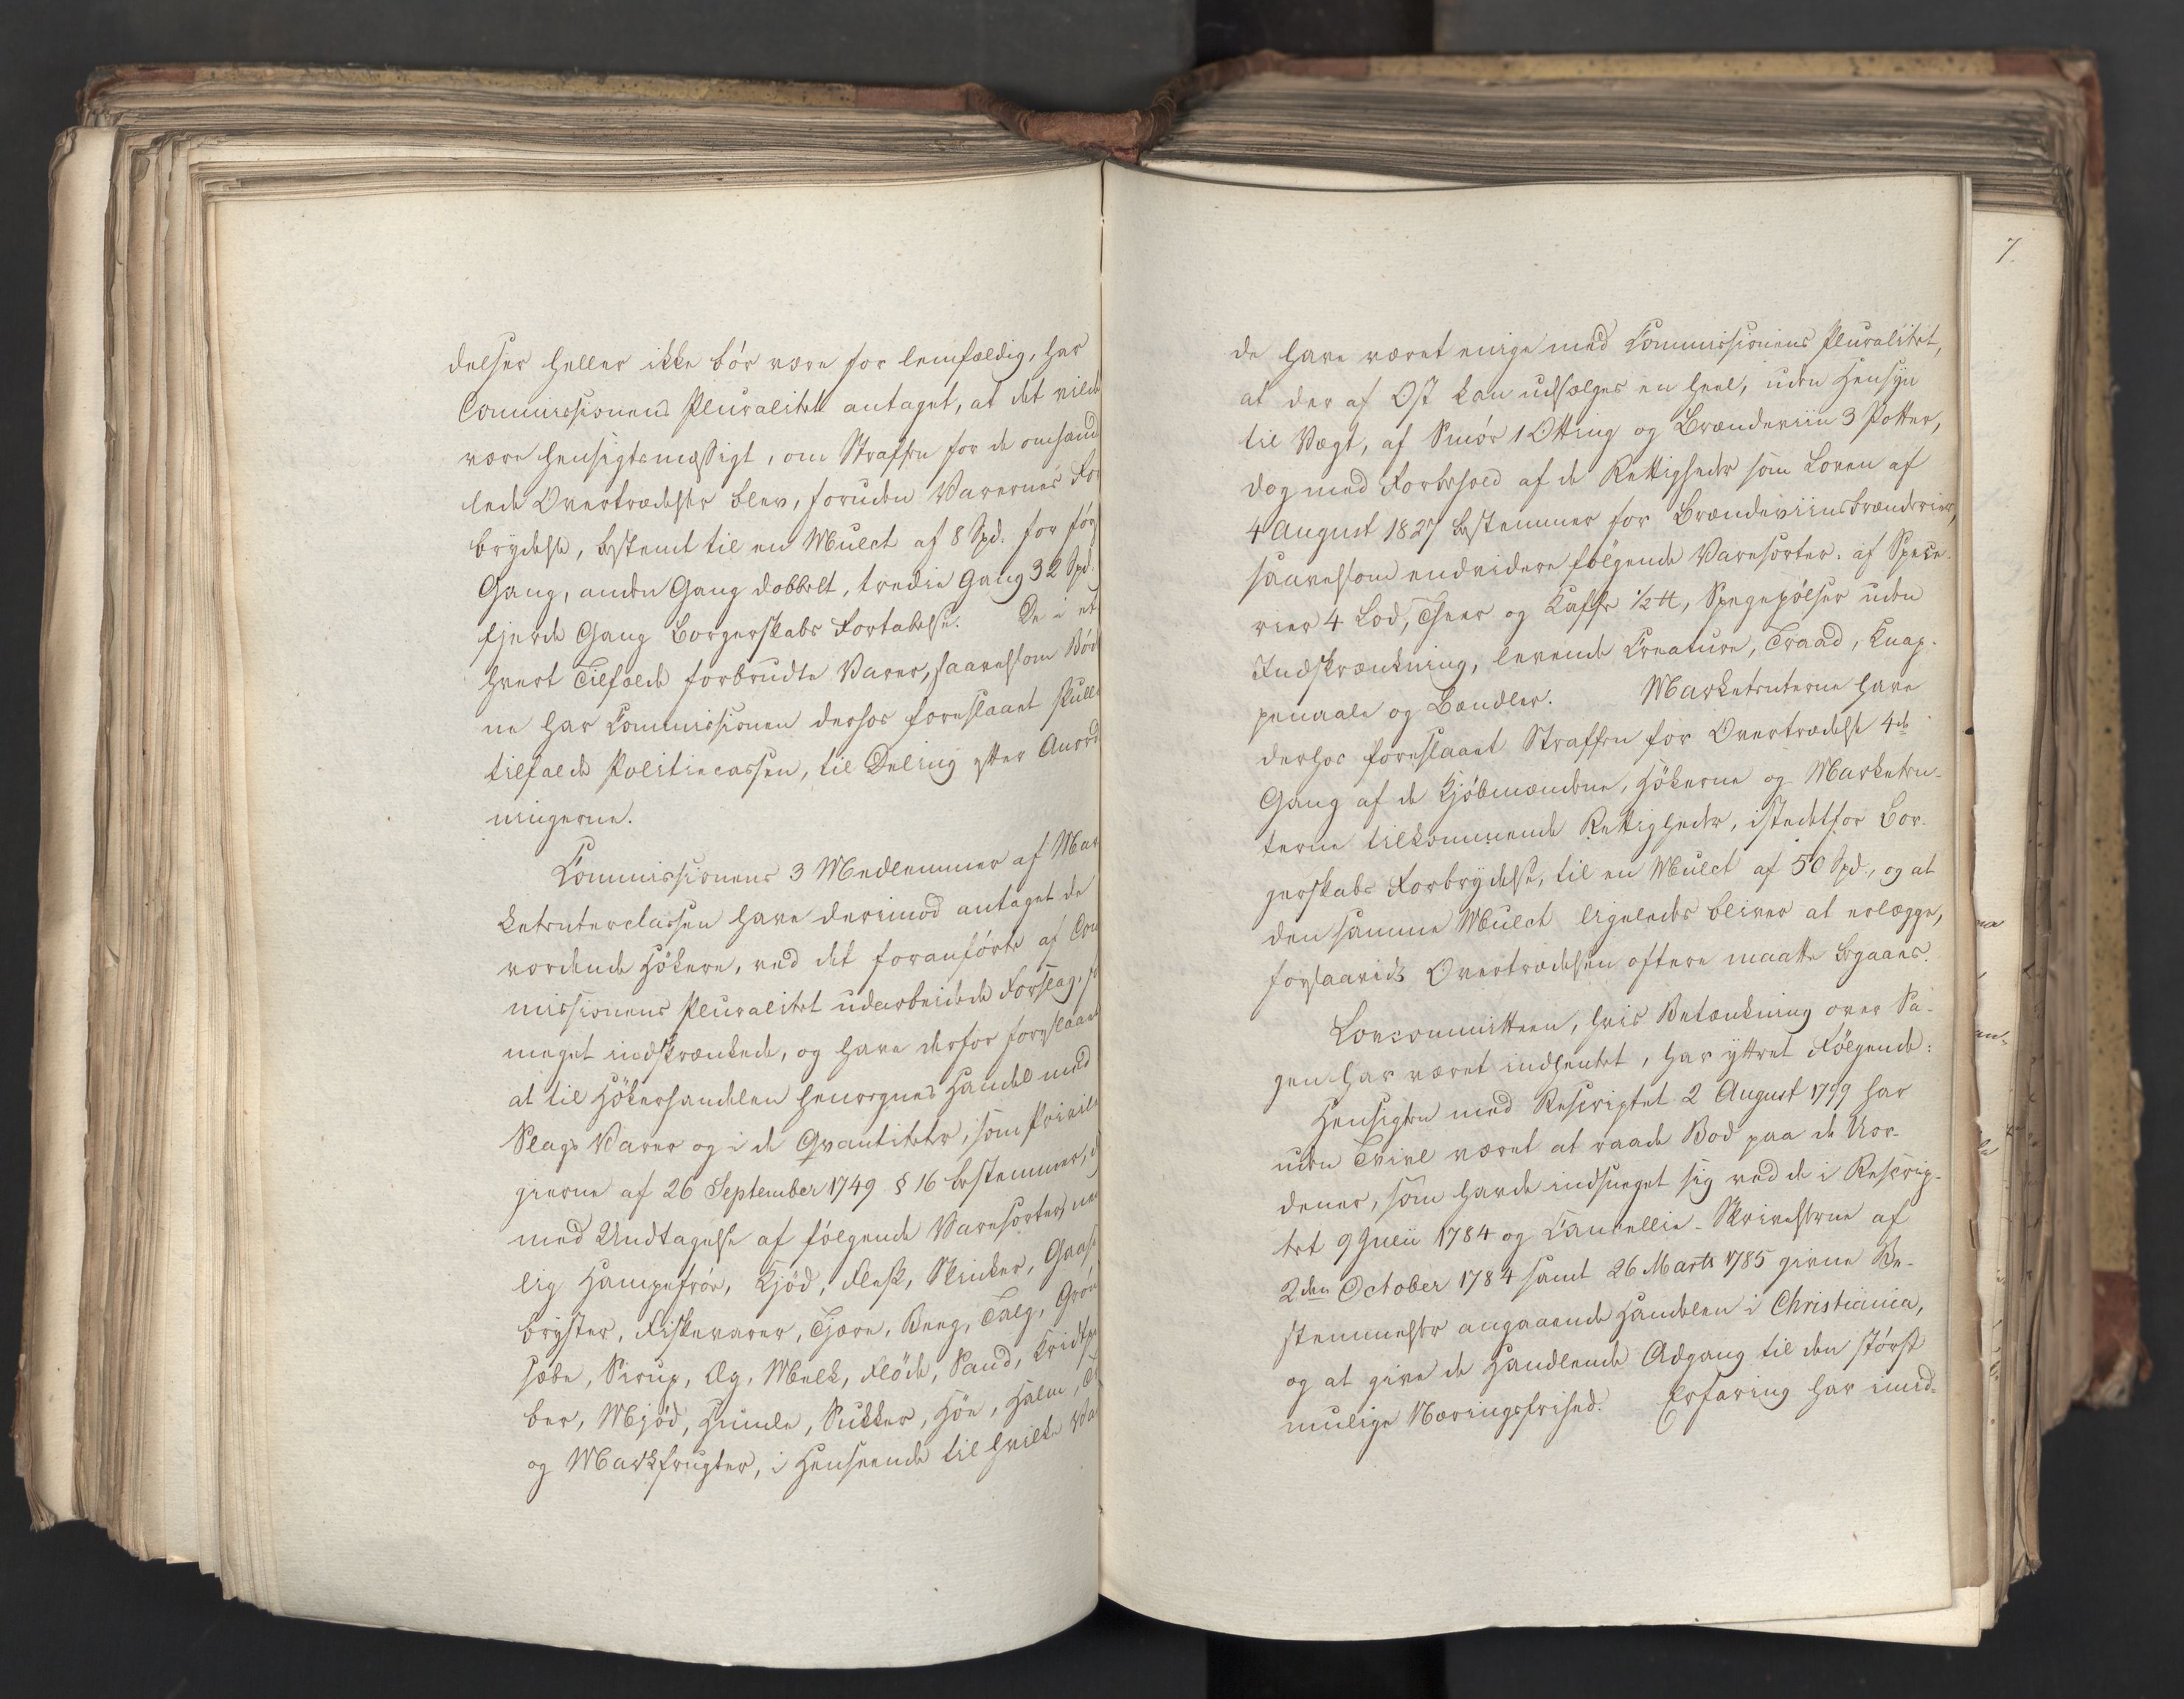 delser heller ikke bör være for lemfældig, har
Commissionens Pluralitet antaget, at det vilde
være hensigtsmæssigt, om Straffen for de omhand
lede Overtrædelser blev, foruden Varernes For
brydelse, bestemt til en Mulct af 8 Spd. for förs
Gang, anden Gang dobbelt, tredie Gang 32 Spd.
fjerde Gang Borgerskabs Fortabelse. De i et
hvert Tilfælde forbrudte Varer, saavelsom Böd
ne har Commissionen derhos foreslaaet skulle
tilfalde Politiecassen, til Deling efter Anord
ningerne.
Commissionens 3 Medlemmer af Mar
ketenterclassen have derimod antaget de
vordende Hökere, ved det foranförte af Com
missionens Pluralitet udarbeidede Forslag, for
meget indskrænkede, og have derfor foreslaaet
at til Hökerhandelen henregnes Handel med
Slags Varer og i de Qvantiteter, som Privile
gierne af 26 September 1749 § 16 bestemmer,
med Undtagelse af fölgende Varesorter, nem
lig Hampefröe, Kjöd, Flesk, Skinker, Gaase
bryster, Fiskevarer, Tjære, Beeg, Talg, Grön
sæbe, Sirup, Æg, Melk, Flöde, Sand, Kridtpi
ber, Mjöd, Humle, Sukker, Höe, Halm,
og Markfrugter, i Henseende til hvilke Va
7.
de have været enige med Commissionens Pluralitet,
at der af Ost kan udsælges en heel, uden Hensyn
til Vægt, af Smör 1 Otting og Brændeviin 3 Potter,
dog med Forbehold af de Rettigheder som Loven af
4 August 1827 bestemmer for Brændeviinsbrænderier,
saavelsom endvidere fölgende Varesorter: af Spece-
rier 4 Lod, Thee og Kaffe ½ ℔, Spegepölser uden
Indskrænkning, levende Creature, Traad, Knap-
penaale og Bændler. Marketenterne have
derhos foreslaaet Straffen for Overtrædelse 4de
Gang af de Kjöbmændene, Hökerne og Marketen-
terne tilkommende Rettigheder, istedetfor Bor-
gerskabs Forbrydelse, til en Mulct af 50 Spd., og at
den samme Mulct ligeledes bliver at erlægge,
forsaavidt Overtrædelsen oftere maatte begaaes.
Lovcommitteen, hvis Betænkning over Sa-
gen har været indhentet, har yttret Fölgende:
Hensigten med Rescriptet 2 August 1799 har
uden Tvivl været at raade Bod paa de Uor-
dener, som havde indsneget sig ved de i Rescrip-
tet 9 Junii 1784 og Cancellie-Skrivelserne af
2den October 1784 samt 26 Marts 1785 givne Be-
stemmelser angaaende Handelen i Christiania,
og at give de Handlende Adgang til den störst
mulige Næringsfrihed. Erfaring har imid-